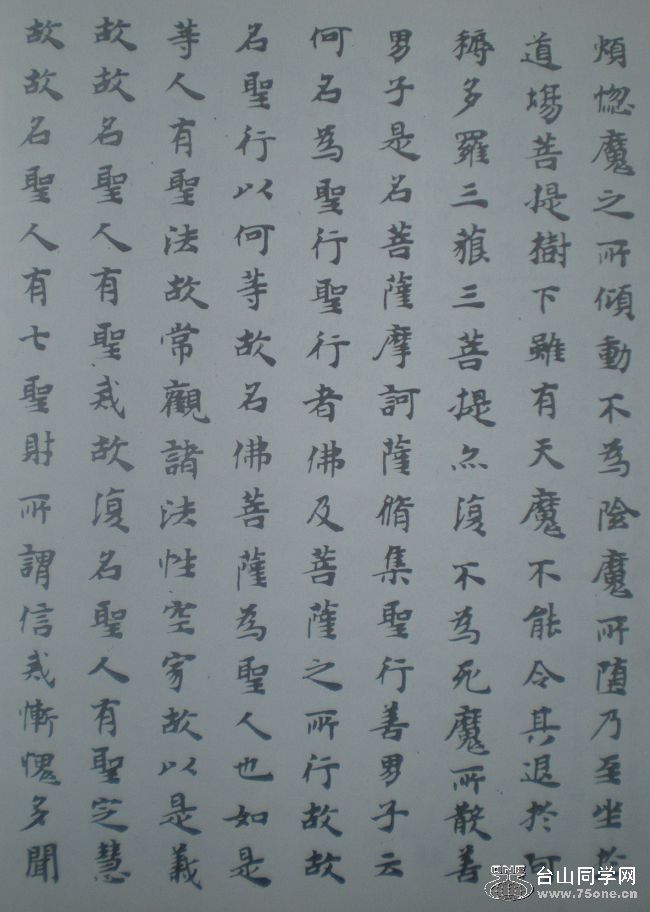 煩惚魔之所傾動不為陰魔所随乃至坐於
道場菩提樹下雖有天魔不能令其退於阿
耨多羅三藐三菩提亦復不為死魔所散善
男子是名菩薩摩訶薩脩集聖行善男子云
何名為聖行聖行者佛及菩薩之所行故故
名聖行以何等故名佛菩薩為聖人也如是
等人有聖法故常觀諸法性空寂故以是義
故故名聖人有聖戒故復名聖人有聖定慧
故故名聖人有七聖財所謂信戒慚愧多聞
台山同学网
www.75one.cn